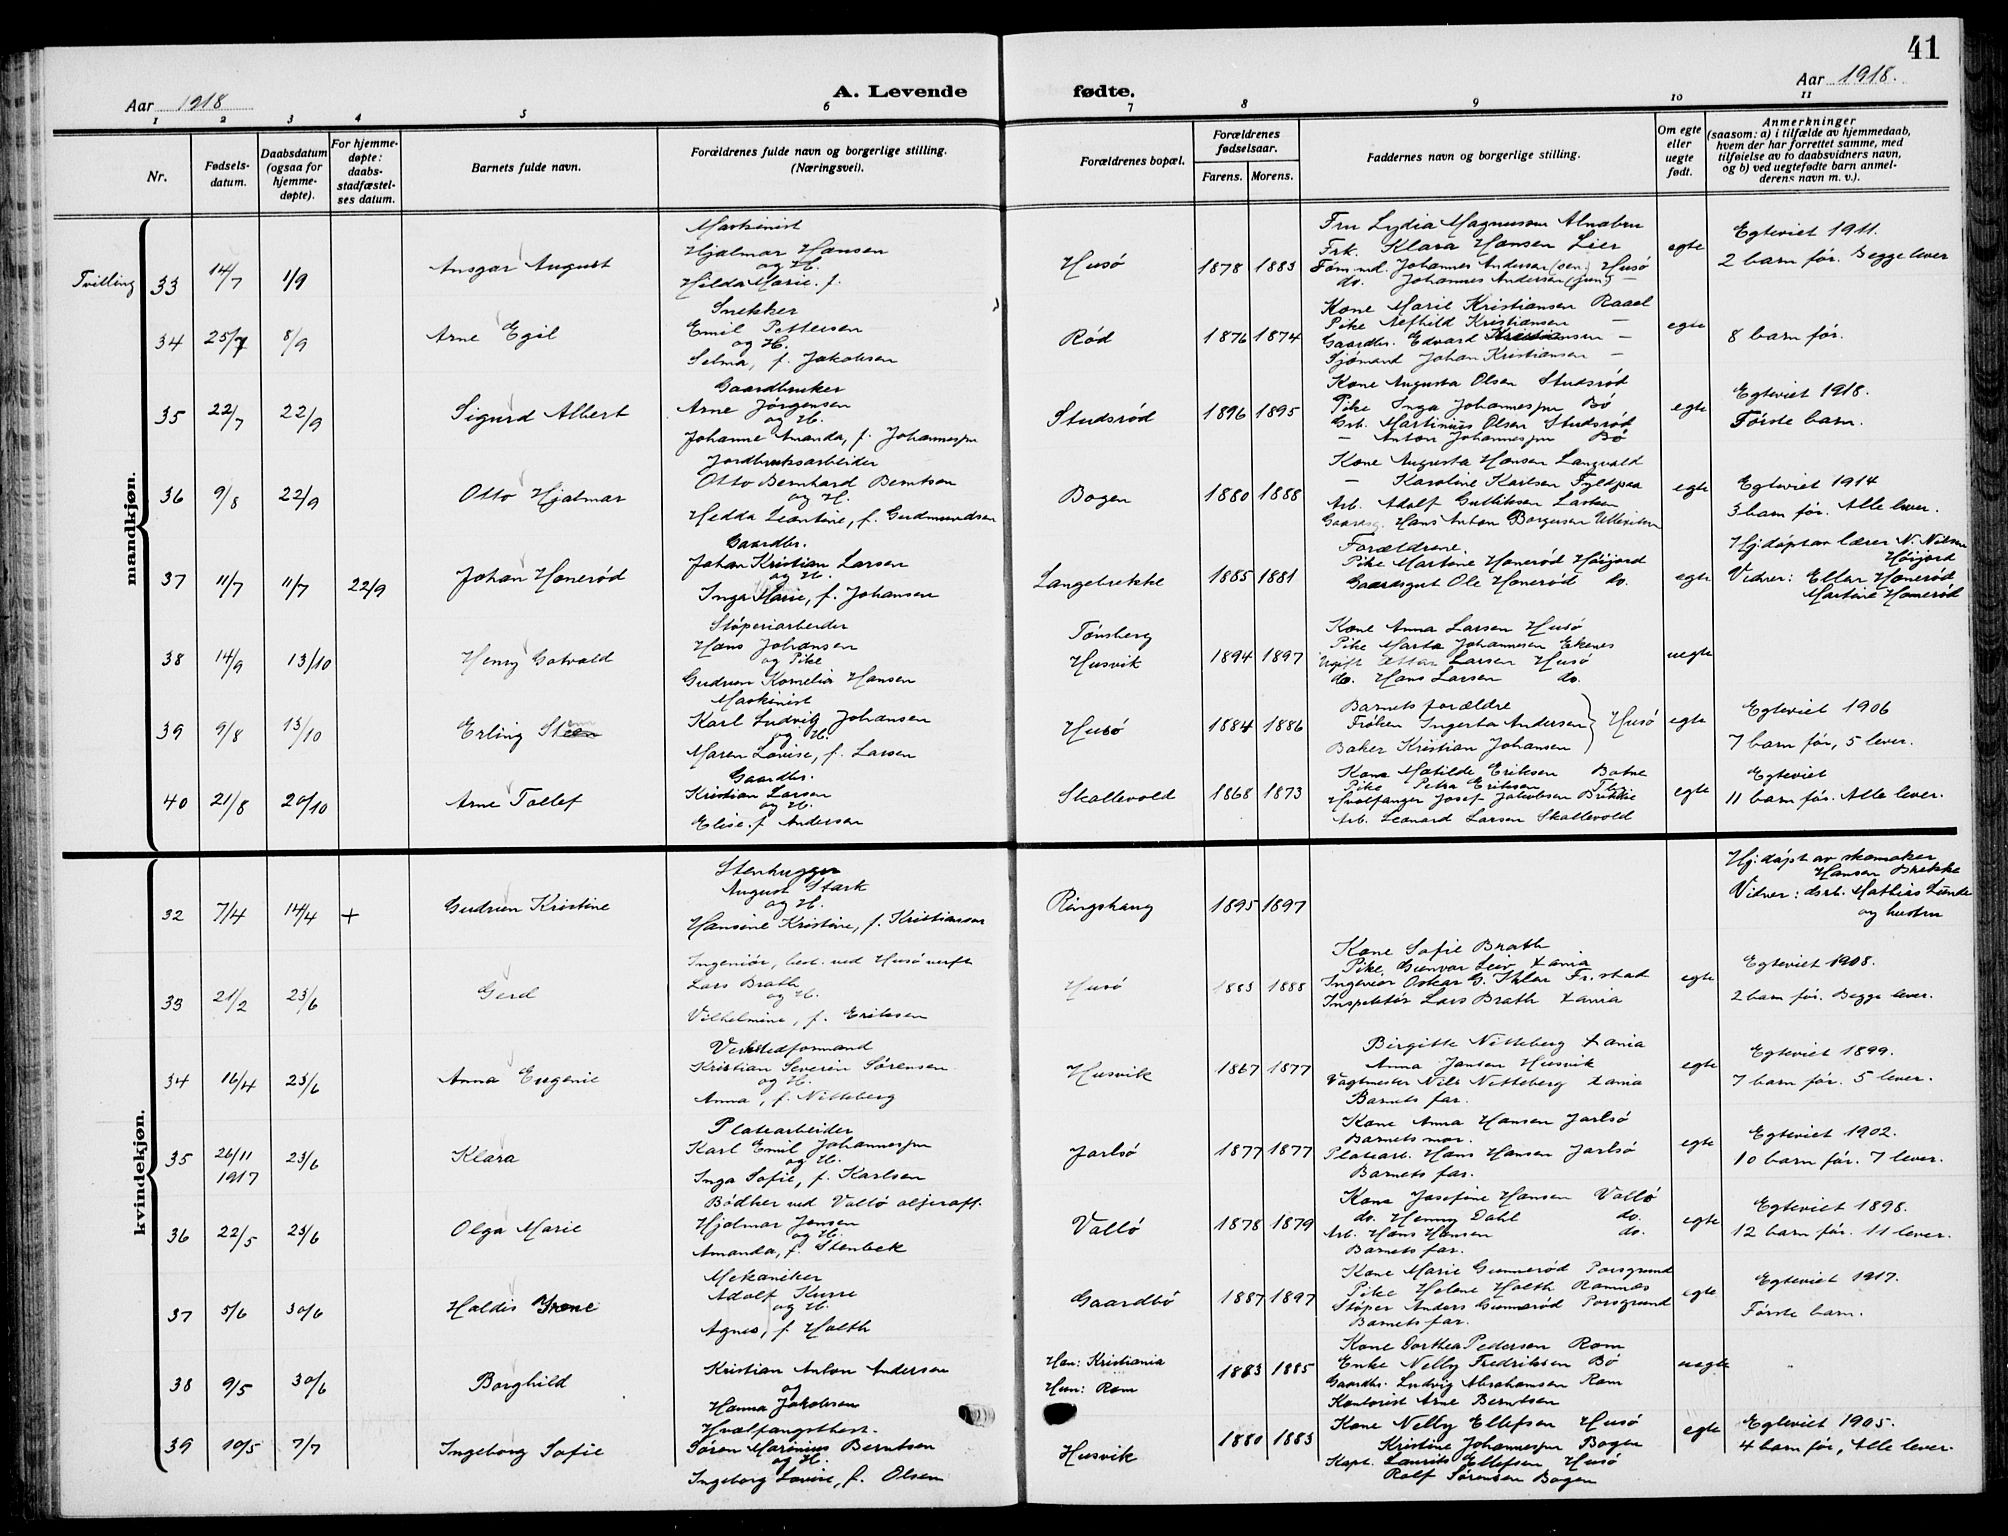 41
Aar 1918
A. Levende
fødte.
Aar 1918.
1 2 3 4 5 6 7 8 9 10 11
Nr.
Fødsels-
datum.
Daabsdatum
(ogsaa for
hjemme-
døpte).
For hjemme-
døpte:
daabs-
stadfæstel-
ses datum.
Barnets fulde navn.
Forældrenes fulde navn og borgerlige stilling.
(Næringsvei).
Forældrenes bopæl.
Forældrenes
fødselsaar.
Farens. Morens.
Faddernes navn og borgerlige stilling.
Om egte
eller
uegte
født.
Anmerkninger
(saasom: a) i tilfælde av hjemmedaab,
hvem der har forrettet samme, med
tilføielse av to daabsvidners navn,
og b) ved uegtefødte barn anmel-
derens navn m. v.).
mandkjøn.
Tvilling 33 14/7 1/9 Ansgar August
Maskinist
Hjalmar Hansen
og H.
Hilda Marie. f.
Husö 1878 1883
Fru Lydia Magnussen Alnabru
Frk. Klara Hansen Lier
Tömmd. Johannes Andersen (sen) Husö
do. Johannes Andersen (jun) —
egte
Egteviet 1911.
2 barn før. Begge lever
34 25/7 8/9 Arne Egil
Snekker
Emil Pettersen
og H.
Selma, f. Jakobsen
Rød 1876 1874
Kone Marie Kristiansen Raael
Pike Kristiansen —
Gaardbr. Edvard Kristiansen —
Sjömand Johan Kristiansen —
egte
8 barn før.
35 22/7 22/9 Sigurd Albert
Gaardbruker
Arne Jörgensen
og H.
Johanne Amanda, f. Johannesen
Studsrød 1896 1895
Kone Augusta Olsen Studsrød
Pike Inga Johannesen Bö
Grb. Martinius Olsen Studsrød
— Anton Johannesen Bö
egte
Egteviet 1918.
Förste barn.
36 9/8 22/9 Otto Hjalmar
Jordbruksarbeider
Otto Bernhard Berntsen
og H.
Hedda Leontine, f. Gudmundsen
Bogen 1880 1888
Kone Augusta Hansen Langvald
— Karoline Karlsen Fyldpaa
Arb. Adolf Gulliksen Lasken
Gaardsg. Hans Anton Borgersen
egte
Egteviet 1914
3 barn før. Alle lever.
37 11/7 11/7 22/9 Johan Honerød
Gaardbr.
Johan Kristian Larsen
og H.
Inga Marie, f. Johansen
Langebrekke 1885 1881
Forældrene.
Pike Martine Honerød Höijord
Gaardsgut Ole Honerød do.
egte
Hj.döpt av lærer N. Nilsen
Höijord
Vidner: Ellen Honerød
Martine Honerød
38 14/9 13/10 Henry Gotvald
Støperiarbeider
Hans Johansen
og Pike
Gudrun Kornelia Hansen
Tönsberg
Husvik 1894 1897
Kone Anna Larsen Husö
Pike Marta Johannesen Ekenes
Ugift Larsen Husö
do. Hans Larsen do.
uegte
39 9/8 13/10 Erling
Maskinist
Karl Ludvig Johansen
og H.
Maren Lovise, f. Larsen
Husö 1884 1886
Barnets forældre
Fröken Ingerta Andersen
Baker Kristian Johansen
Husö
egte
Egteviet 1906
7 barn før, 5 lever.
40 21/8 20/10 Arne Tollef
Gaardbr.
Kristian Larsen
og H.
Elise. f Andersen
Skallevold 1868 1873
Kone Matilde Eriksen Botne
Pike Petra Eriksen
Hvalfanger Josef Jakobsen Brekke
Arb. Leonard Larsen Skallevold
egte
Egteviet
11 barn før. Alle lever.
kvindekjøn.
32 7/4 14/4 + Gudrun Kristine
Stenhugger
August Stark
og H.
Hansine Kristine, f. Kristiansen
Ringshaug 1895 1897
Hj.döpt av skomaker
Hansen Brekke
Vidner: Mathias Lunde
og hustru
33 21/2 23/6 Gerd
Ingeniör, best. ved Husö verft
Lars Brath
og H.
Vilhelmine, f. Eriksen
Husö 1883 1888
Kone Sofie Brath
Pike Gunvor Leiv Xania
Ingeniør Oskar G. Ihlen Fr.stad
Inspektør Lars Brath Xania
egte
Egteviet 1908.
2 barn før. Begge lever.
34 16/4 23/6 Anna Eugenie
Verkstedformand
Kristian Severin Sørensen
og H.
Anna, f. Nitteberg
Husvik 1867 1877
Birgitte Nitteberg Xania
Anna Jansen Husvik
Vagtmester Nils Nitteberg Xania
Barnets far.
egte
Egteviet 1899.
7 barn før. 5 lever.
35 26/11 1917 23/6 Klara
Platearbeider
Karl Emil Johannesen
og H.
Inga Sofie, f. Karlsen
Jarlsö 1877 1877
Kone Anna Hansen Jarlsö
Barnets mor.
Platearb. Hans Hansen Jarlsö
Barnets far.
egte
Egteviet 1902.
10 barn før. 7 lever.
36 22/5 23/6 Olga Marie
Bødker ved Vallö oljeraff.
Hjalmar Jensen
og H.
Amanda, f. Stenbek
Vallö 1878 1879
Kone Josefine Hansen Vallö
do. Henny Dahl do.
Arb. Hans Hansen do.
Barnets far.
egte
Egteviet 1898.
12 barn før. 11 lever.
37 5/6 30/6 Haldis Irene
Mekaniker
Adolf Kurre
og H.
Agnes, f. Holth
Gaardbö 1887 1897
Kone Marie Gunnerød Porsgrund
Pike Helene Holth Ramnes
Støper Anders Gunnerød Porsgrund
Barnets far.
egte
Egteviet 1917.
Förste barn.
38 9/5 30/6 Borghild
Kristian Anton Andersen
og
Hanna Jakobsen
Han: Kristiania
Hun: Rom
1883 1885
Kone Dorthea Pedersen Rom
Enke Nelly Fredriksen Bö
Gaardbr. Ludvig Abrahamsen Rom
Kontorist Arne Berntsen
uegte
39 10/5 7/7 Ingeborg Sofie
Hvalfangstbest.
Søren Marinius Berntsen
og H.
Ingeborg Lovise, f. Olsen
Husvik 1880 1883
Kone Nelly Ellefsen Husö
Kristine Johannesen Bogen
Kapt. Laurits Ellefsen Husö
Rolf Sørensen Bogen
egte
Egteviet 1905.
4 barn før, Alle lever.